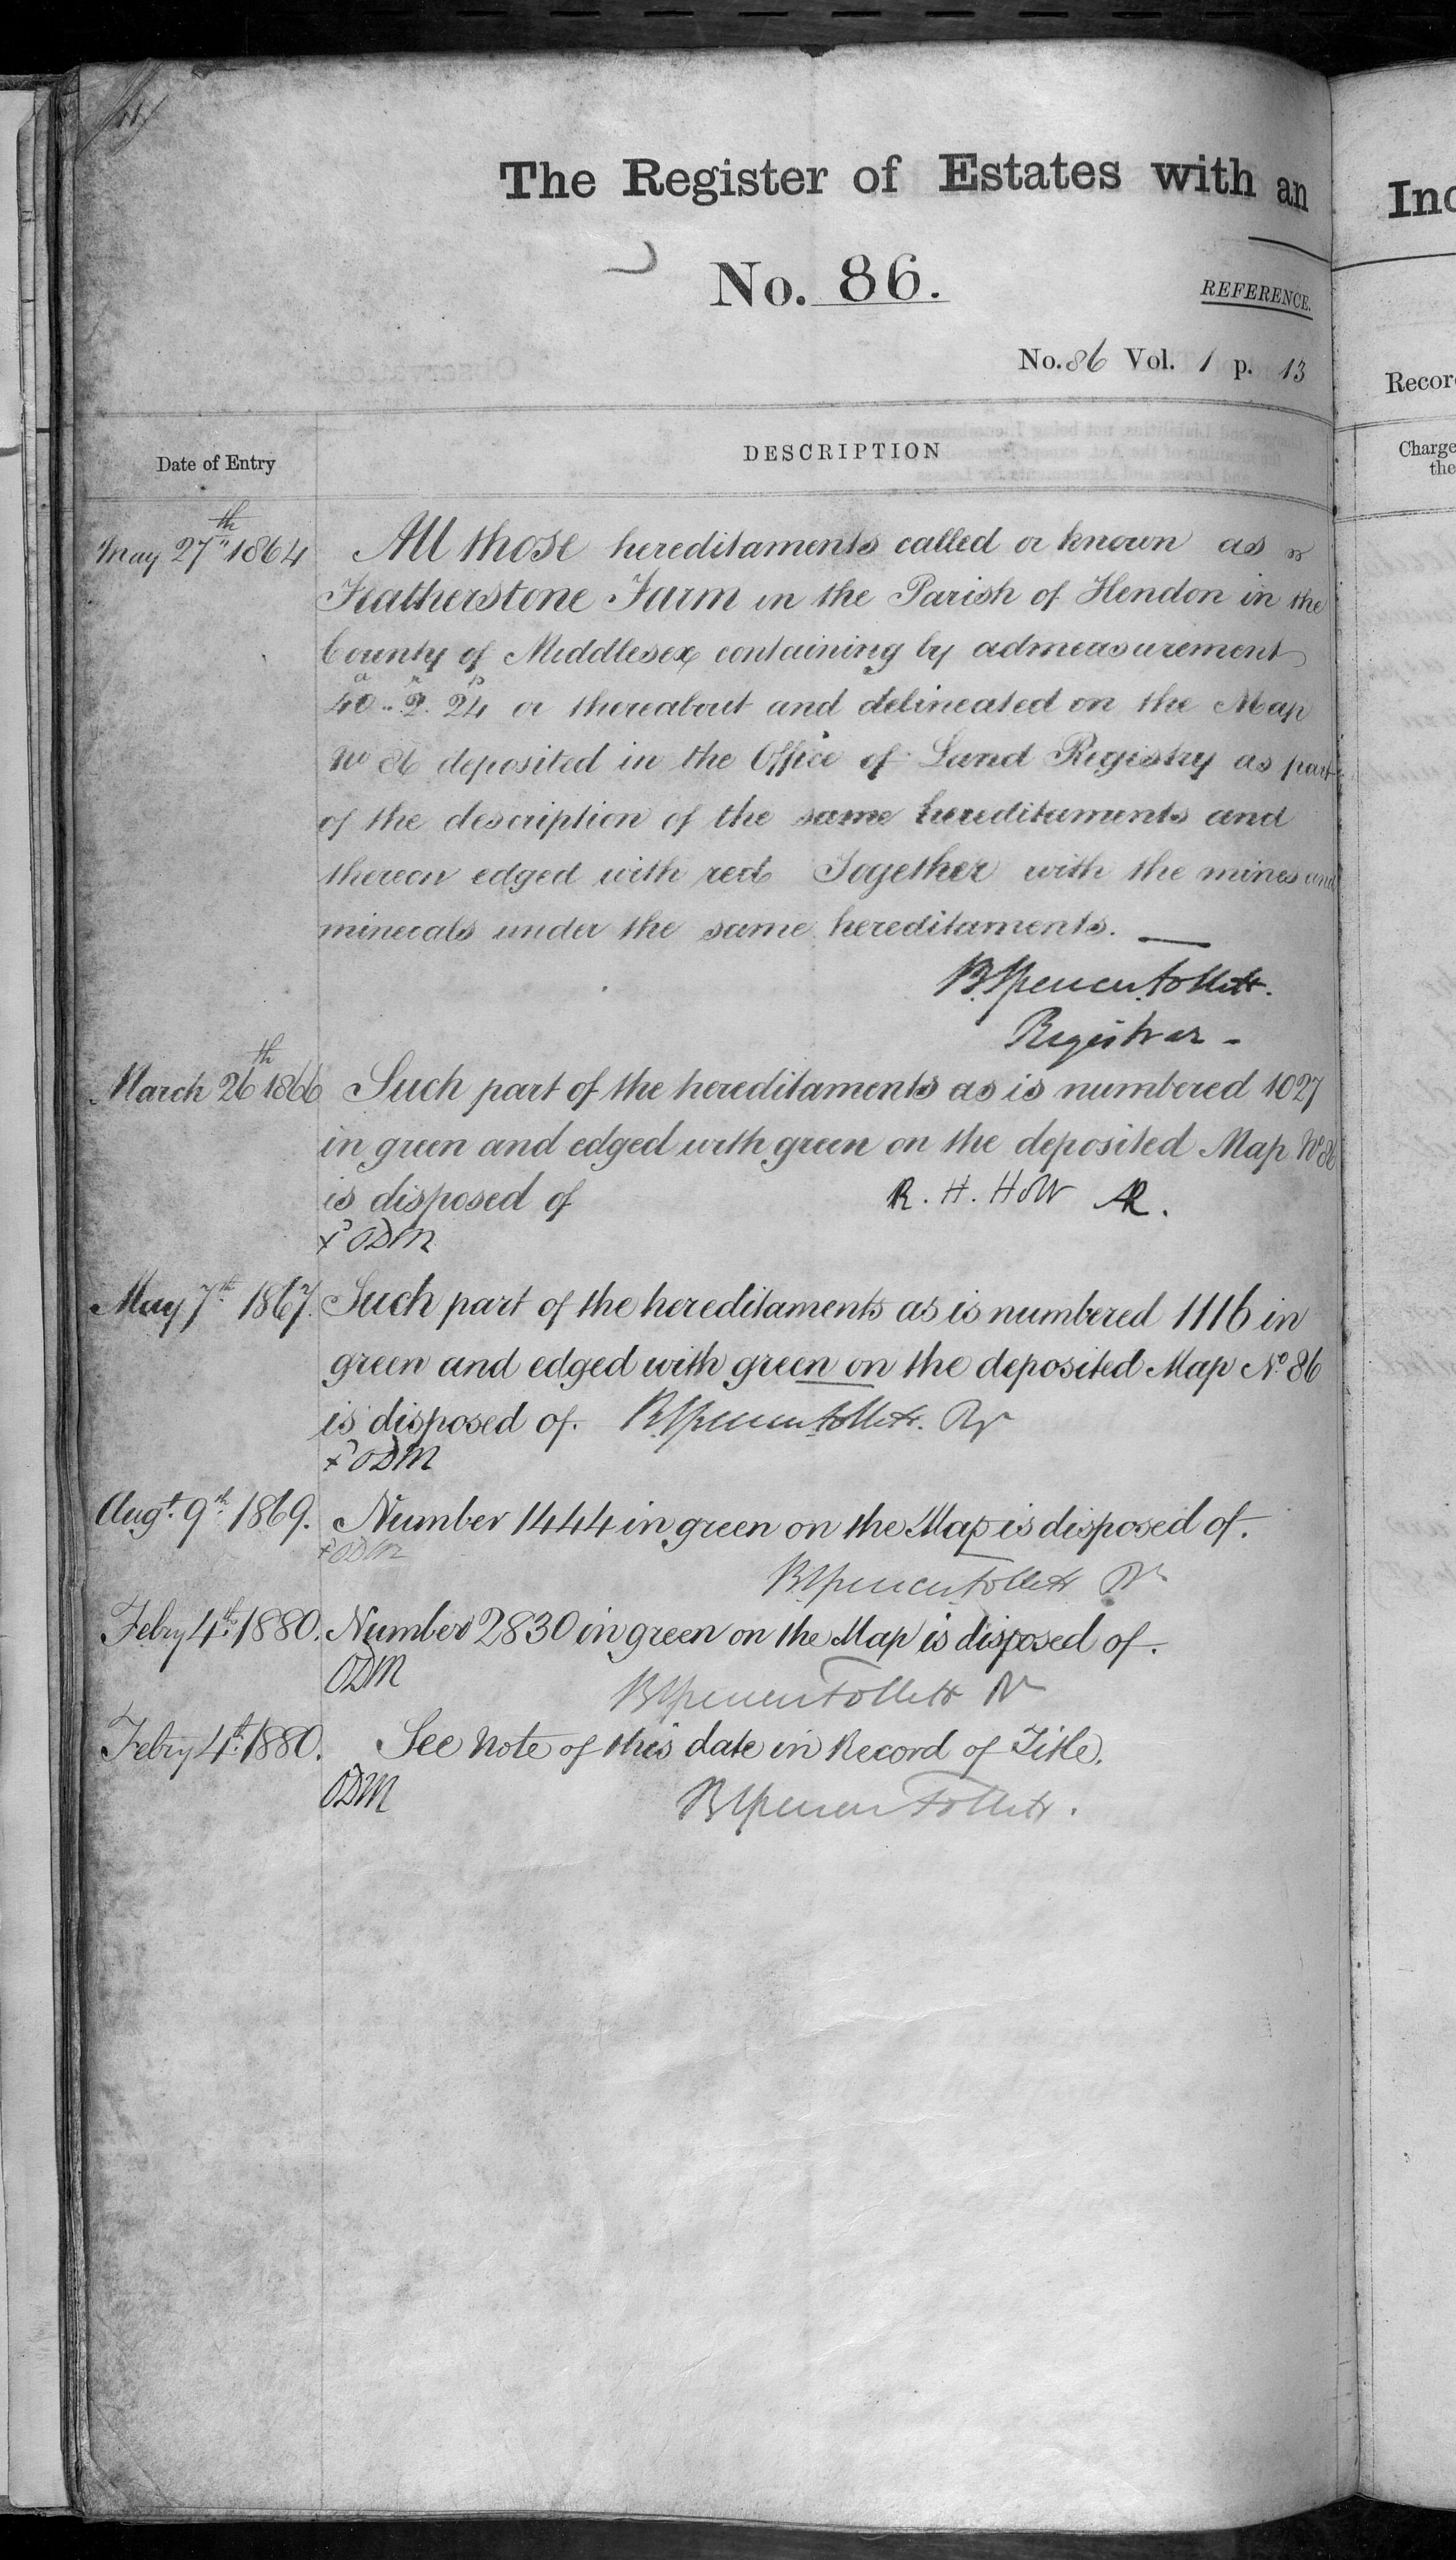 The Register of Estates with an
No. 86.
REFERENCE.
No. 86 Vol. 1 p. 13
Date of Entry
DESCRIPTION
May 27th 1864
All those hereditaments called or known as
Featherstone Farm in the Parish of Hendon in the
County of Middlesex containing by admeasurement
a r p
40 .. 2. 24 or thereabout and delineated on the Map
No 86 deposited in the Office of Land Registry as part
of the description of the same hereditaments and
thereon edged with red Together with the mines and
minerals under the same hereditaments. —
B. Spencer Follett.
Registrar -
March 26th 1866 Such part of the hereditaments as is numbered 1027
in green and edged with green on the deposited Map No 86
is disposed of R. H. Holt AR.
x ODM
May 7th 1867. Such part of the hereditaments as is numbered 1116 in
green and edged with green on the deposited Map No. 86
is disposed of. B. Spencer Follett. Rr
x ODM
Augt. 9th 1869. Number 1444 in green on the Map is disposed of.
x ODM
B Spencer Follett Rr
Febry 4th. 1880. Number 2830 in green on the Map is disposed of.
ODM
B Spencer Follett Rr
Febry 4th. 1880. See Note of this date in Record of Title.
ODM
B Spencer Follett.
Ind
Record
Charge
the